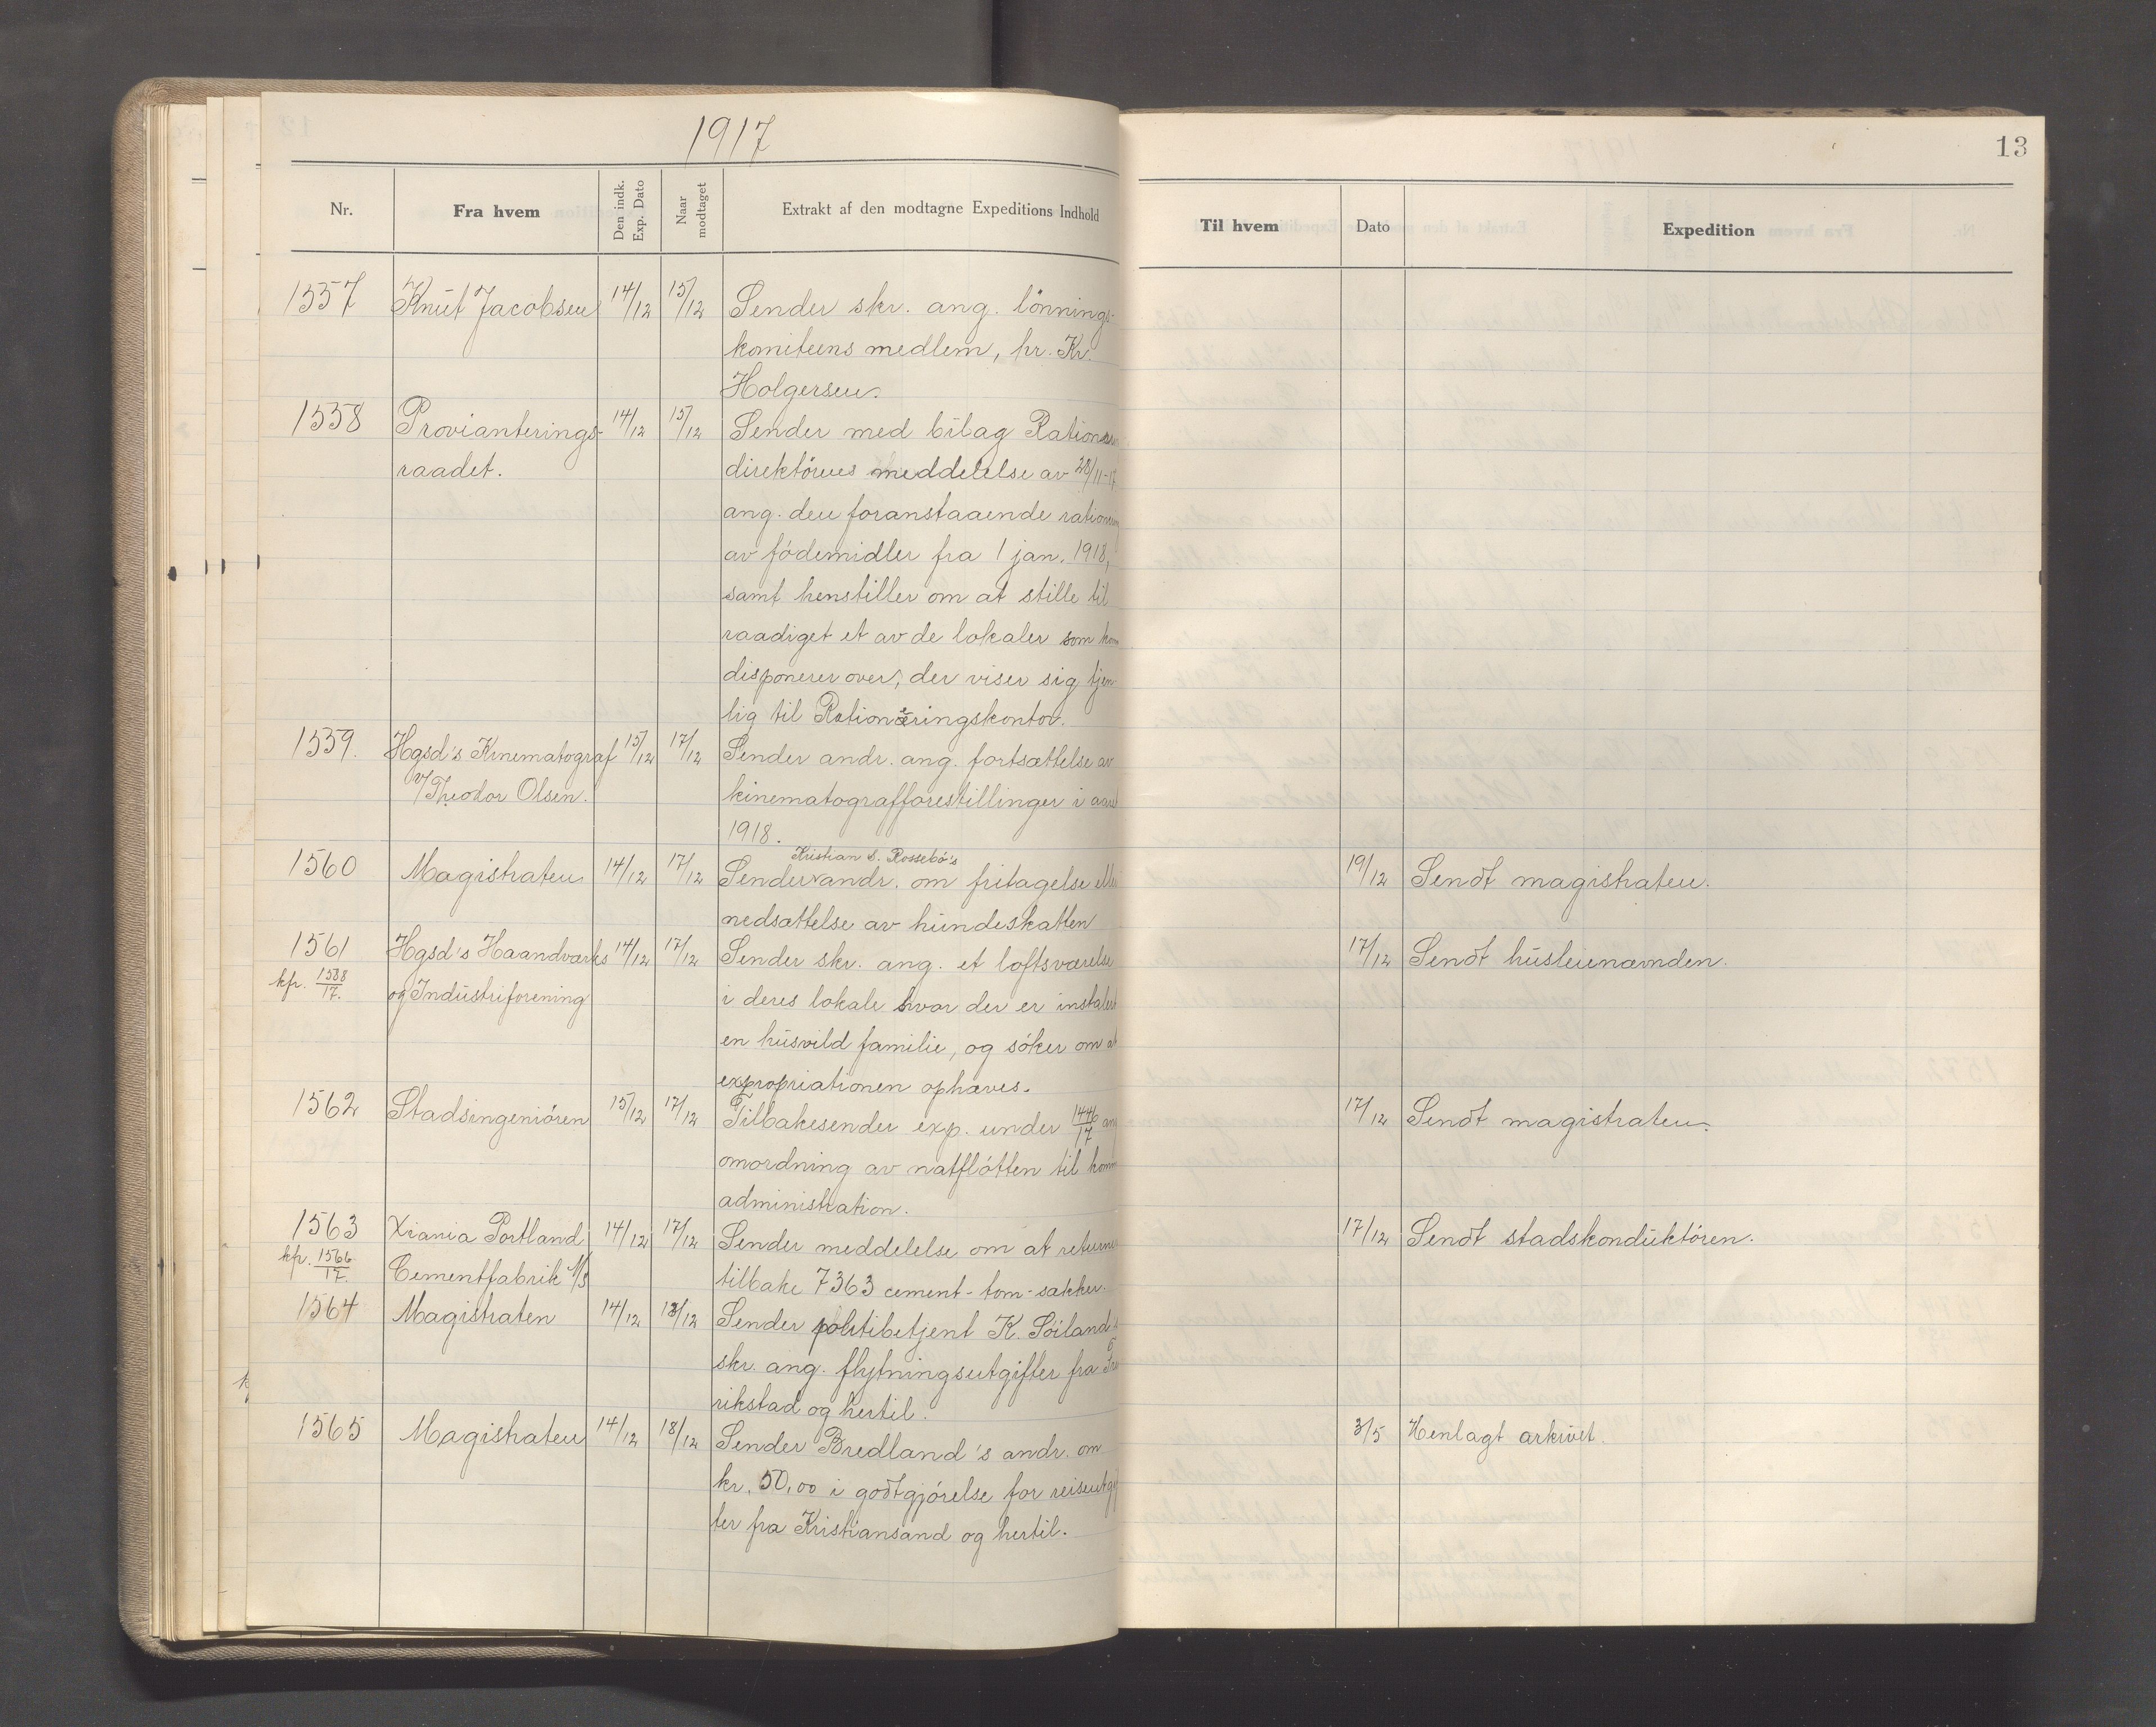 1917
13
Nr. Fra hvem Den indk. Exp. Dato Naar modtaget Extrakt af den modtagne Expeditions Indhold Til hvem Dato Expedition
1557 Knut Jacobsen 14/12 15/12 Sender skr. ang. lönnings-
komiteens medlem, hr. Kr.
Holgersen.
1558 Provianterings- 14/12 15/12 Sender med bilag
raadet. direktörens meddelelse av 28/11-17
ang. den foranstaaende
av födemidler fra 1 jan. 1918,
samt henstiller om at stille til
raadiget et av de lokaler som
disponerer over, der viser sig tjen-
lig til Rationeringskontor.
1559. Hgsd's Kinematograf 15/12 17/12 Sender andr. ang. fortsættelse av
v/ Theodor Olsen. kinematografforestillinger i
1918.
Kristian S. Rossebö's
1560 Magistraten 14/12 17/12 Sender andr. om fritagelse 19/12 Sendt magistraten.
nedsættelse av hundeskatten
1561 Hgsd's Haandværks 14/12 17/12 Sender skr. ang. et loftsværelse 17/12 Sendt husleienævnden.
kfr. 1588/17. og Industriforening i deres lokale hvor der er
en husvild familie, og söker om at
expropriationen ophæves.
1562 Stadsingeniören 15/12 17/12 Tilbakesender exp. under 1446/17 17/12 Sendt magistraten.
omordning av natflótten til
administration.
1563 Xiania Portland 14/12 17/12 Sender meddelelse om at 17/12 Sendt stadskonduktören.
kfr. 1566/17. Cementfabrik A/S tilbake 7363 cement-tom-sækker.
1564 Magistraten 14/12 18/12 Sender politibetjent K. Söiland
skr. ang. flytningsutgifter fra
rikstad og hertil.
1565 Magistraten 14/12 18/12 Sender Bredland's andr. om 3/5 Henlagt arkivet.
kr. 50,00 i godtgjörelse for
ter fra Kristiansand og hertil.